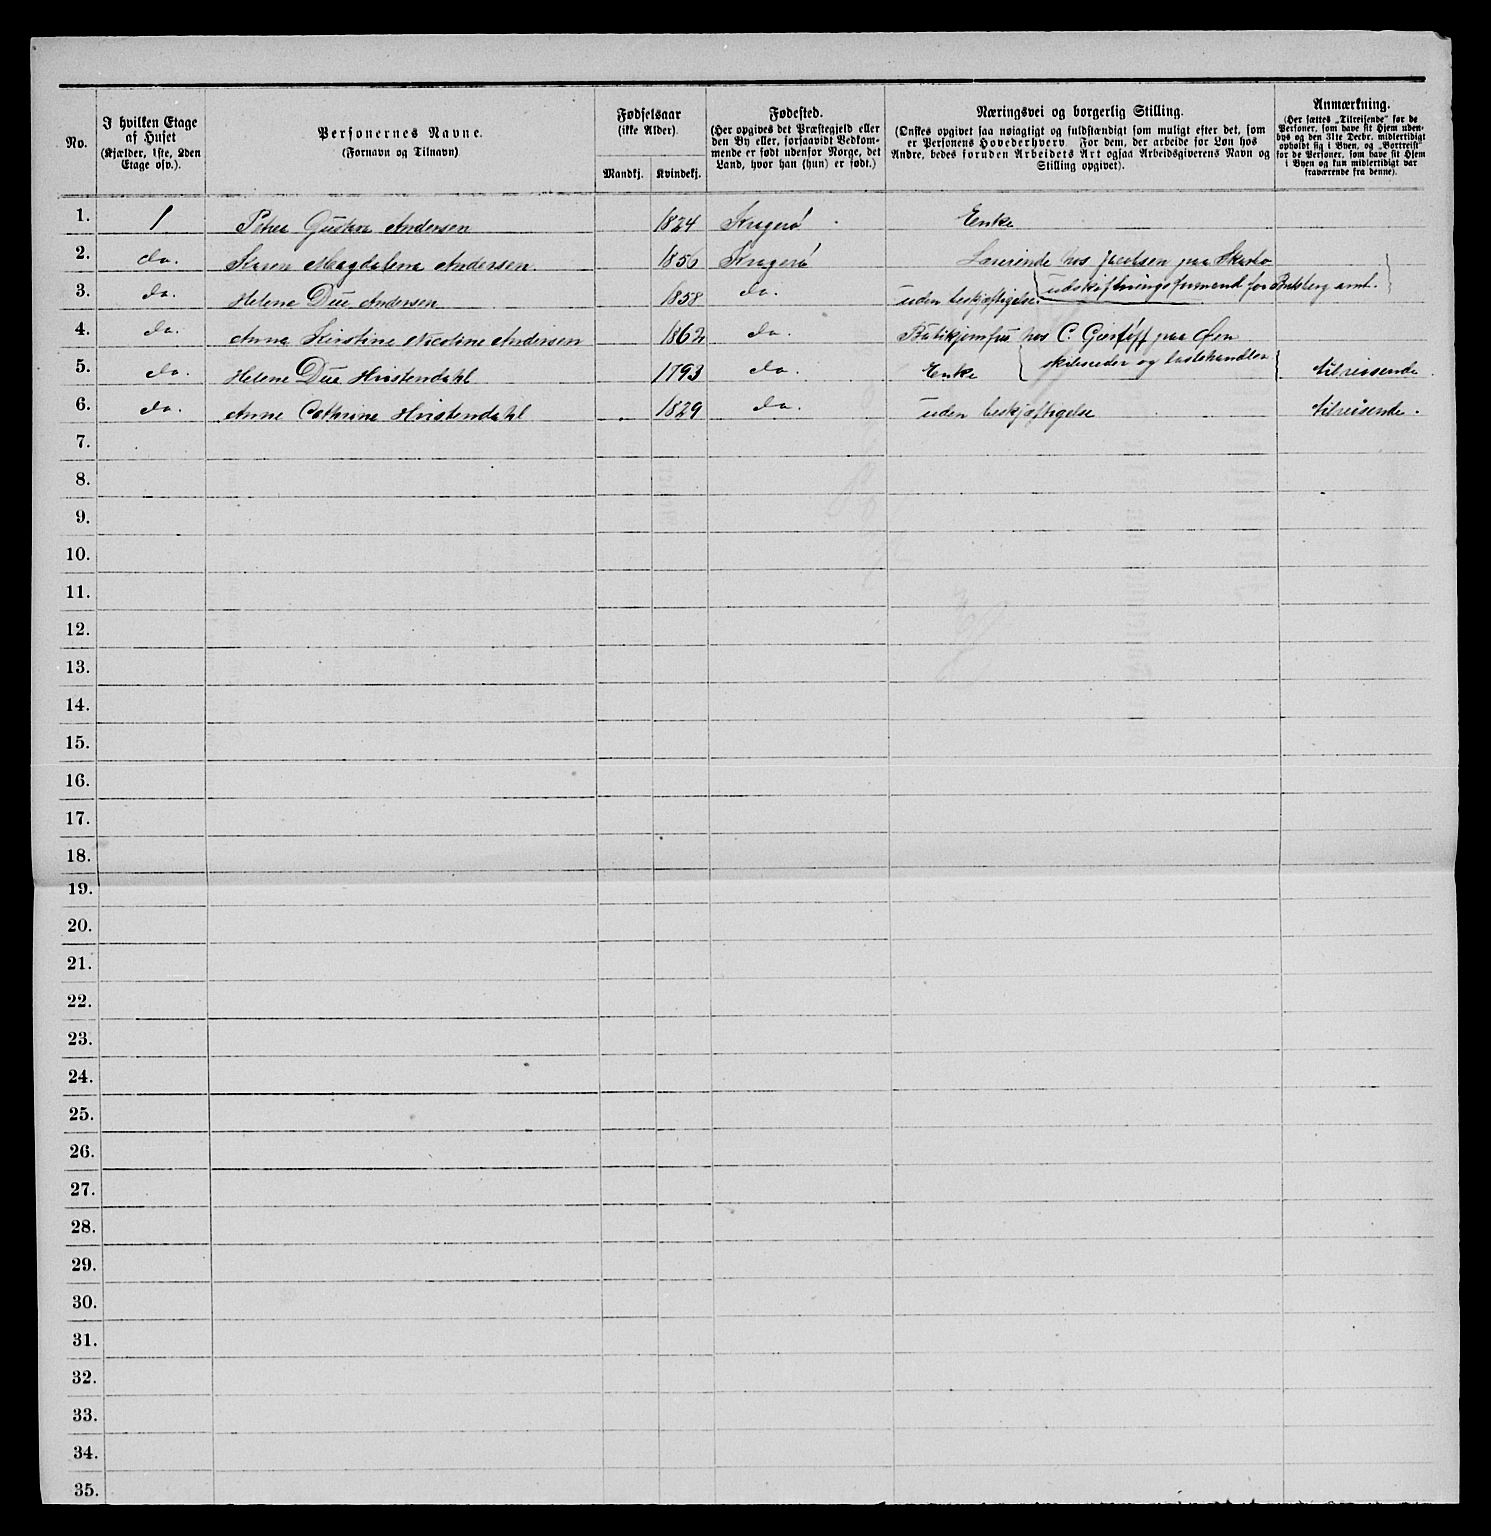 No.
I hvilken Etage af Huset (Kjælder, 1ste, 2den Etage osv.).
Personernes Navne. (Fornavn og Tilnavn)
Fødselsaar (ikke Alder)
Mandkj. Kvindekj.
Fødested. (Her opgives det Præstegjeld eller den By eller, forsaavidt Bedkommende er født udenfor Norge, det Land, hvor han (hun) er født.)
Næringsvei og borgerlig Stilling. (Ønskes opgivet saa nøiagtigt og fuldstændigt som muligt efter det, som er Personens Hovederhverv. For dem, der arbeide for Løn hos Andre, bedes foruden Arbeidets Art ogsaa Arbeidsgiverens Navn og Stilling opgivet).
Anmærkning. (Her sættes „Tilreisende“ for de Personer, som have sit Hjem udenbys og den 31te Decbr. midlertidigt opholdt sig i Byen, og „Bortreist“ for de Personer, som have sit Hjem i Byen og kun midlertidigt var fraværende fra denne).
1. 1 Petrea Gustava Andersen 1824 Kragerö Enke
2. do. Karen Magdalena Andersen 1856 Kragerö Lærerinde hos Jacobsen paa
udskiftningsformend for Bratsberg amt.
3. do. Helene Due Andersen 1858 do. uden beskjæftigelse
4. do. Anna Kirstine Nicoline Andersen 1862 do. Butikjomfru hos C. paa Øen
skibsreder og lastehandler
5. do. Helene Due Hvistendahl 1793 do. Enke tilreisende
6. do. Anne Cathrine Hvistendahl 1829 do. uden beskjæftigelse tilreisende.
7.
8.
9.
10.
11.
12.
13.
14.
15.
16.
17.
18.
19.
20.
21.
22.
23.
24.
25.
26.
27.
28.
29.
30.
31.
32.
33.
34.
35.